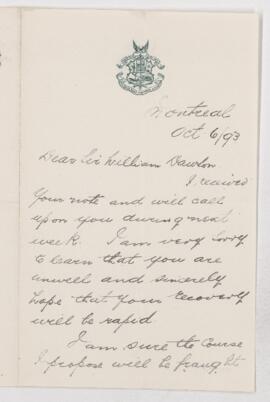 Montreal
Oct 6/93
Dear Sir William Dawson.
I received
your note and will call
upon you during next
week. I am very sorry
to learn that you are
unwell and sincerely
hope that your recovery
will be rapid
I am sure the course
I propose will be fraught